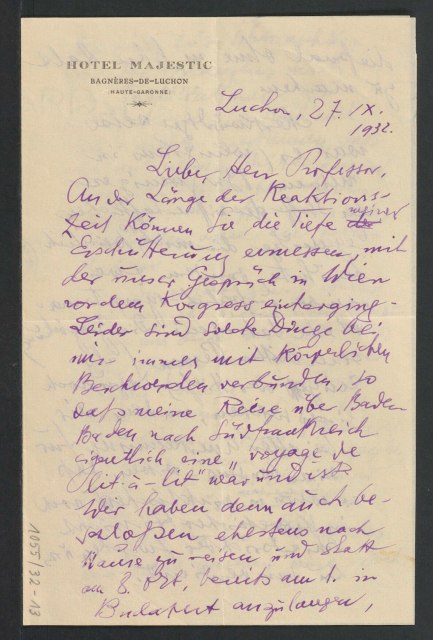 HOTEL MAJESTIC
BAGNÈRES-DE-LUCHON
(HAUTE-GARONNE)
Luchon, 27. IX.
1932.
Lieber Herr Professor,
An der Länge der Reaktions-
zeit können Sie die Tiefe der meiner
Erschütterung ermessen, mit
der unser Gespräch in Wien
vor dem Kongress einherging.
Leider sind solche Dinge bei
mir immer mit körperlichen
Beschwerden verbunden, so
daß meine Reise über Baden
Baden nach Südfrankreich
eigentlich eine „voyage de
lit-à-lit" war und ist.
Wir haben denn auch be-
schloßen ehestens nach
Hause zu reisen und statt
am 8. Okt, bereits am 1. in
Budapest anzulangen,
1055/32-13